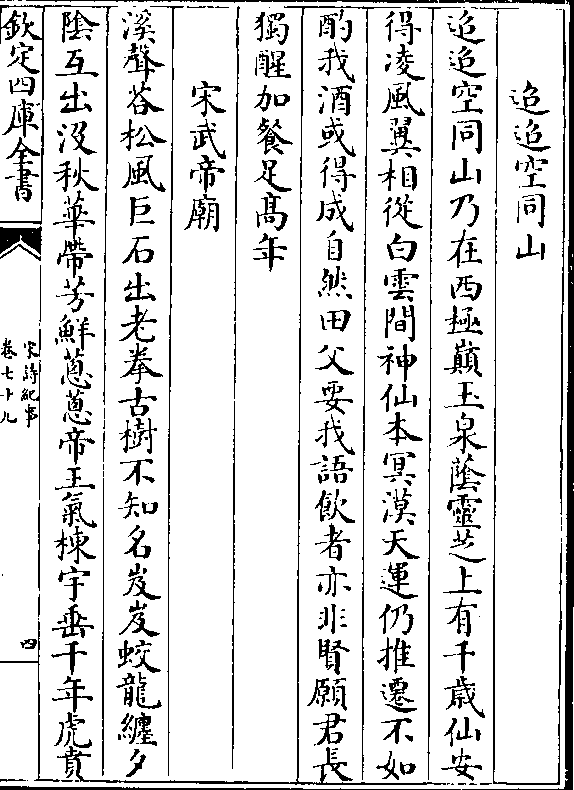 迢迢空同山
迢迢空同山乃在西極巔玉泉蔭靈芝上有千歳仙安
得凌風翼相從白雲間神仙本冥漠天運仍推遷不如
酌我酒或得成自然田父要我語飲者亦非賢願君長
獨醒加餐足髙年
宋武帝廟
溪聲荅松風巨石出老拳古樹不知名岌岌蛟龍纏夕
陰互出沒秋華帶芳鮮蔥蔥帝王氣棟宇垂千年虎賁
欽定四庫全書
宋詩紀事
卷七十九
四